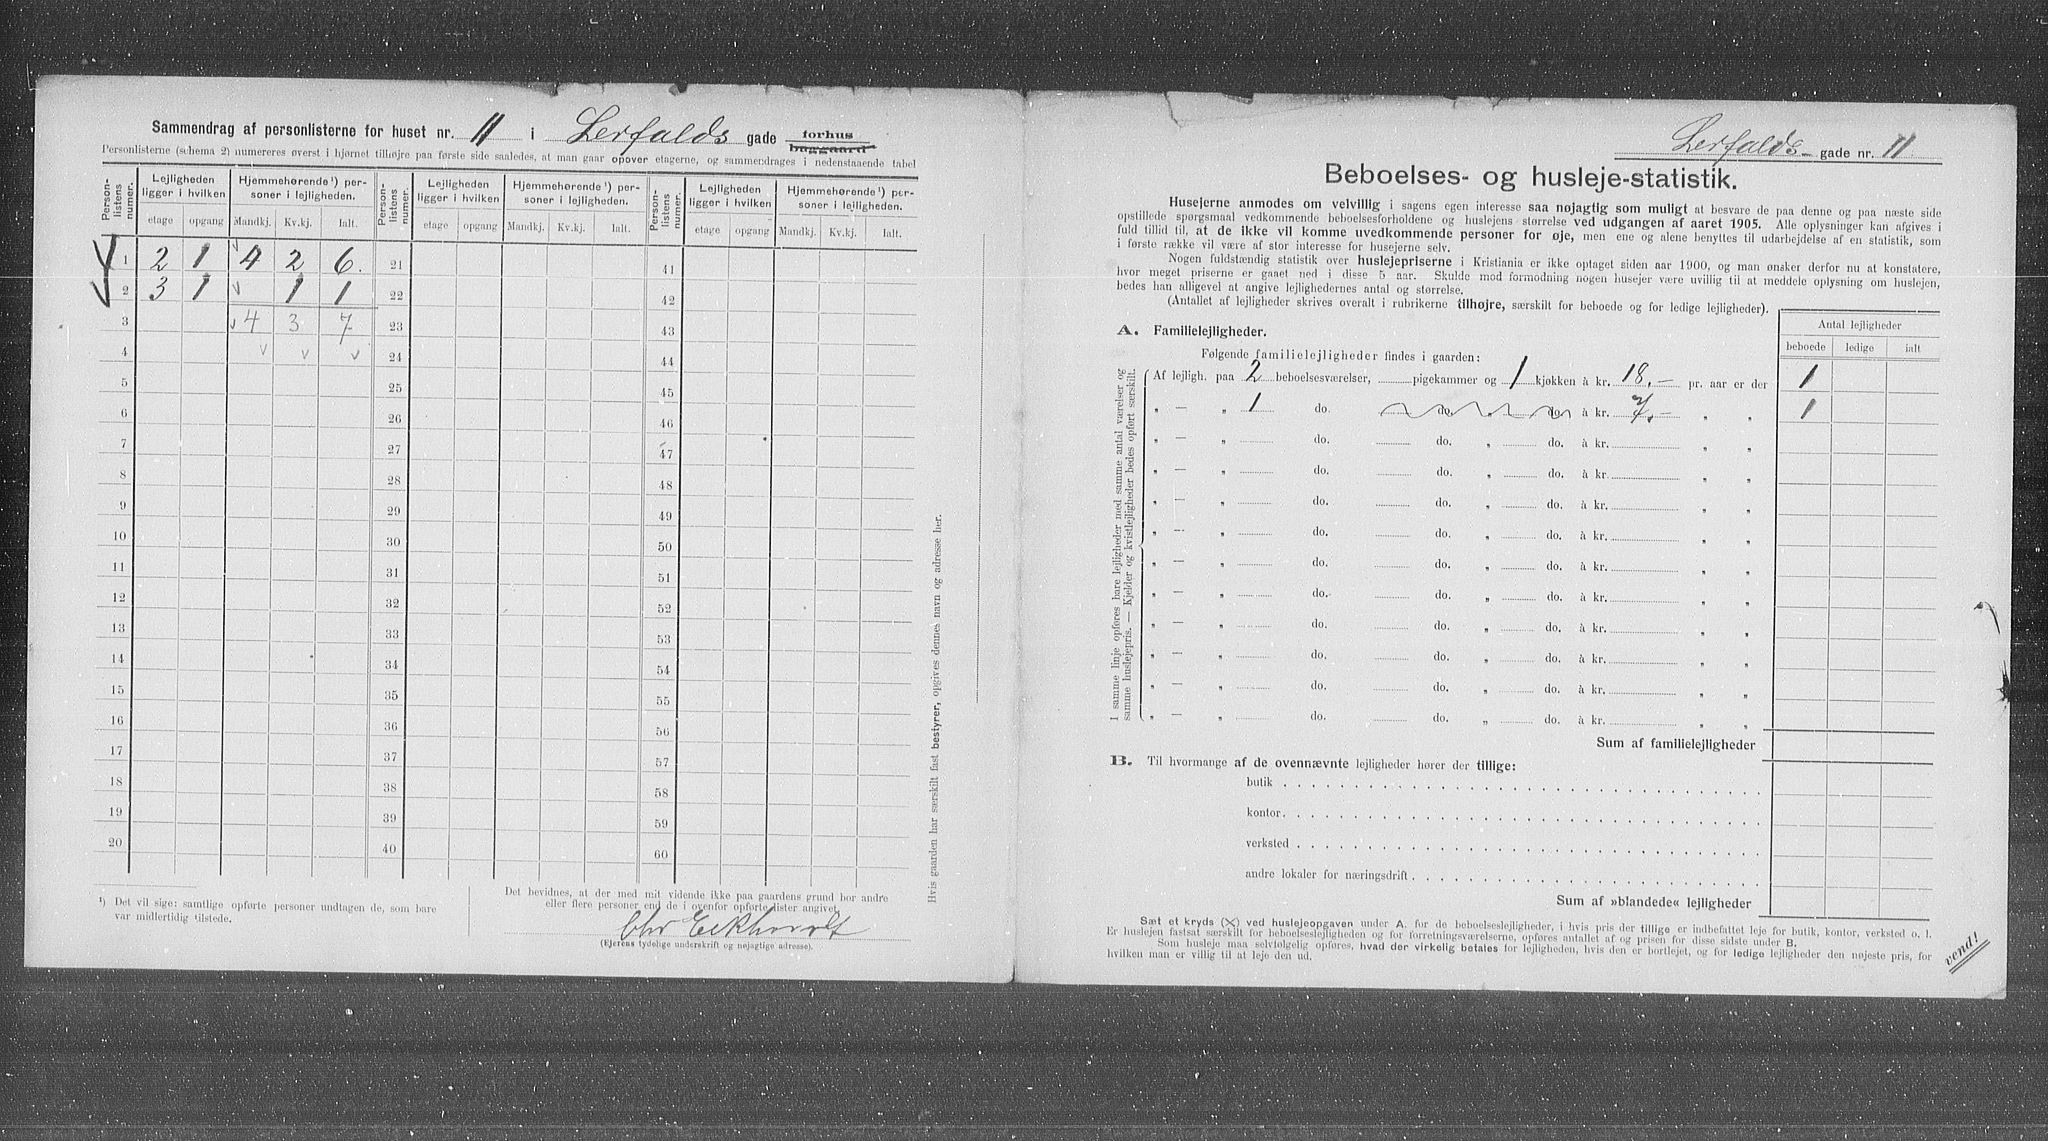 Sammendrag af personlisterne for huset nr. 11 i Lerfalds gade forhus baggaard
Personlisterne (schema 2) numereres øverst i hjørnet tilhøjre paa første side saaledes, at man gaar opover etagerne, og sammendrages i nedenstaaende tabel
Person-listens numer. Lejligheden ligger i hvilken Hjemmehørende ¹) personer i lejligheden. Person-listens numer. Lejligheden ligger i hvilken Hjemmehørende ¹) personer i lejligheden. Person-listens numer. Lejligheden ligger i hvilken Hjemmehørende ¹) personer i lejligheden.
etage opgang Mandkj. Kv.kj. Ialt. etage opgang Mandkj. Kv.kj. Ialt. etage opgang Mandkj. Kv.kj. Ialt.
1 2 1 4 2 6. 21 41
2 3 1 1 1 22 42
3 4 3 7 23 43
4 24 44
5 25 45
6 26 46
7 27 47
8 28 48
9 29 49
10 30 50
11 31 51
12 32 52
13 33 53
14 34 54
15 35 55
16 36 56
17 37 57
18 38 58
19 39 59
20 40 60
¹) Det vil sige: samtlige opførte personer undtagen de, som bare
var midlertidig tilstede.
Det bevidnes, at der med mit vidende ikke paa gaardens grund bor andre
eller flere personer end de i ovenfor opførte lister angivet.
Chr Eckhardt
(Ejerens tydelige underskrift og nøjagtige adresse).
Hvis gaarden har særskilt fast bestyrer, opgives dennes navn og adresse her.
Lerfalds gade nr. 11
Beboelses- og husleje-statistik.
Husejerne anmodes om velvillig i sagens egen interesse saa nøjagtig som muligt at besvare de paa denne og paa næste side
opstillede spørgsmaal vedkommende beboelsesforholdene og huslejens størrelse ved udgangen af aaret 1905. Alle oplysninger kan afgives i
fuld tillid til, at de ikke vil komme uvedkommende personer for øje, men ene og alene benyttes til udarbejdelse af en statistik, som
i første række vil være af stor interesse for husejerne selv.
Nogen fuldstændig statistik over huslejepriserne i Kristiania er ikke optaget siden aar 1900, og man ønsker derfor nu at konstatere,
hvor meget priserne er gaaet ned i disse 5 aar. Skulde mod formodning nogen husejer være uvillig til at meddele oplysning om huslejen,
bedes han alligevel at angive lejlighedernes antal og størrelse.
(Antallet af lejligheder skrives overalt i rubrikerne tilhøjre, særskilt for beboede og for ledige lejligheder).
Antal lejligheder
beboede ledige ialt
A. Familielejligheder.
Følgende familielejligheder findes i gaarden:
I samme linje opføres bare lejligheder med samme antal værelser og
samme huslejepris. — Kjelder og kvistlejligheder bedes opført særskilt.
Af lejligh. paa 2 beboelsesværelser, pigekammer og 1 kjøkken à kr. 18.- pr. aar er der 1
„ — „ 1 do. do. „ do. à kr. 7.- „ „ 1
„ — „ do. do. „ do. à kr. „ „
„ — „ do. do. „ do. à kr. „ „
„ — „ do. do. „ do. à kr. „ „
„ — „ do. do. „ do. à kr. „ „
„ — „ do. do. „ do. à kr. „ „
„ — „ do. do. „ do. à kr. „ „
„ — „ do. do. „ do. à kr. „ „
„ — „ do. do. „ do. à kr. „ „
„ — „ do. do. „ do. à kr. „ „
„ — „ do. do. „ do. à kr. „ „
Sum af familielejligheder
B. Til hvormange af de ovennævnte lejligheder hører der tillige:
butik
kontor
verksted
andre lokaler for næringsdrift
Sum af »blandede« lejligheder
Sæt et kryds (×) ved huslejeopgaven under A. for de beboelseslejligheder, i hvis pris der tillige er indbefattet leje for butik, kontor, verksted o. l.
Er huslejen fastsat særskilt for beboelseslejligheden og for forretningsværelserne, opføres antallet af og prisen for disse sidste under B.
Som husleje maa selvfølgelig opføres, hvad der virkelig betales for lejligheden, hvis den er bortlejet, og for ledige lejligheder den nøjeste pris, for
hvilken man er villig til at leje den ud.
vend!